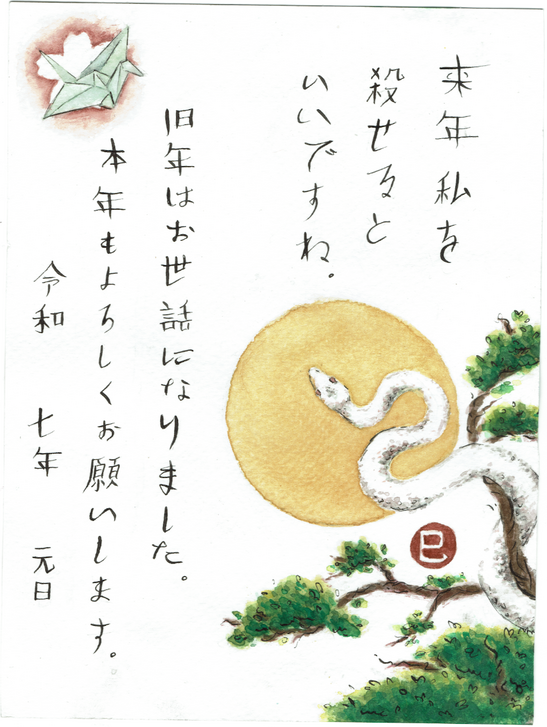 来年 私を
殺せると
いいですね。
旧年はお世話になりました。
本年もよろしくお願いします。
令和 七年 元日
巳